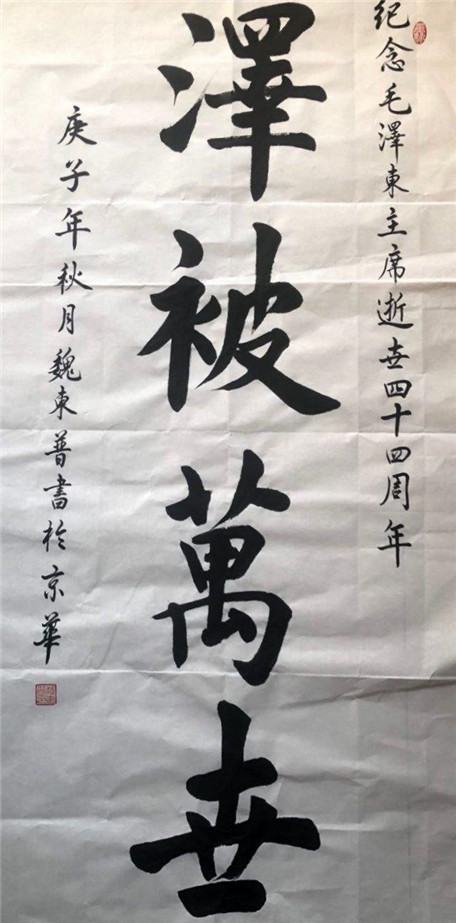 纪念毛澤東主席逝世四十四周年
澤被萬世
庚子年秋月魏東普書於京華